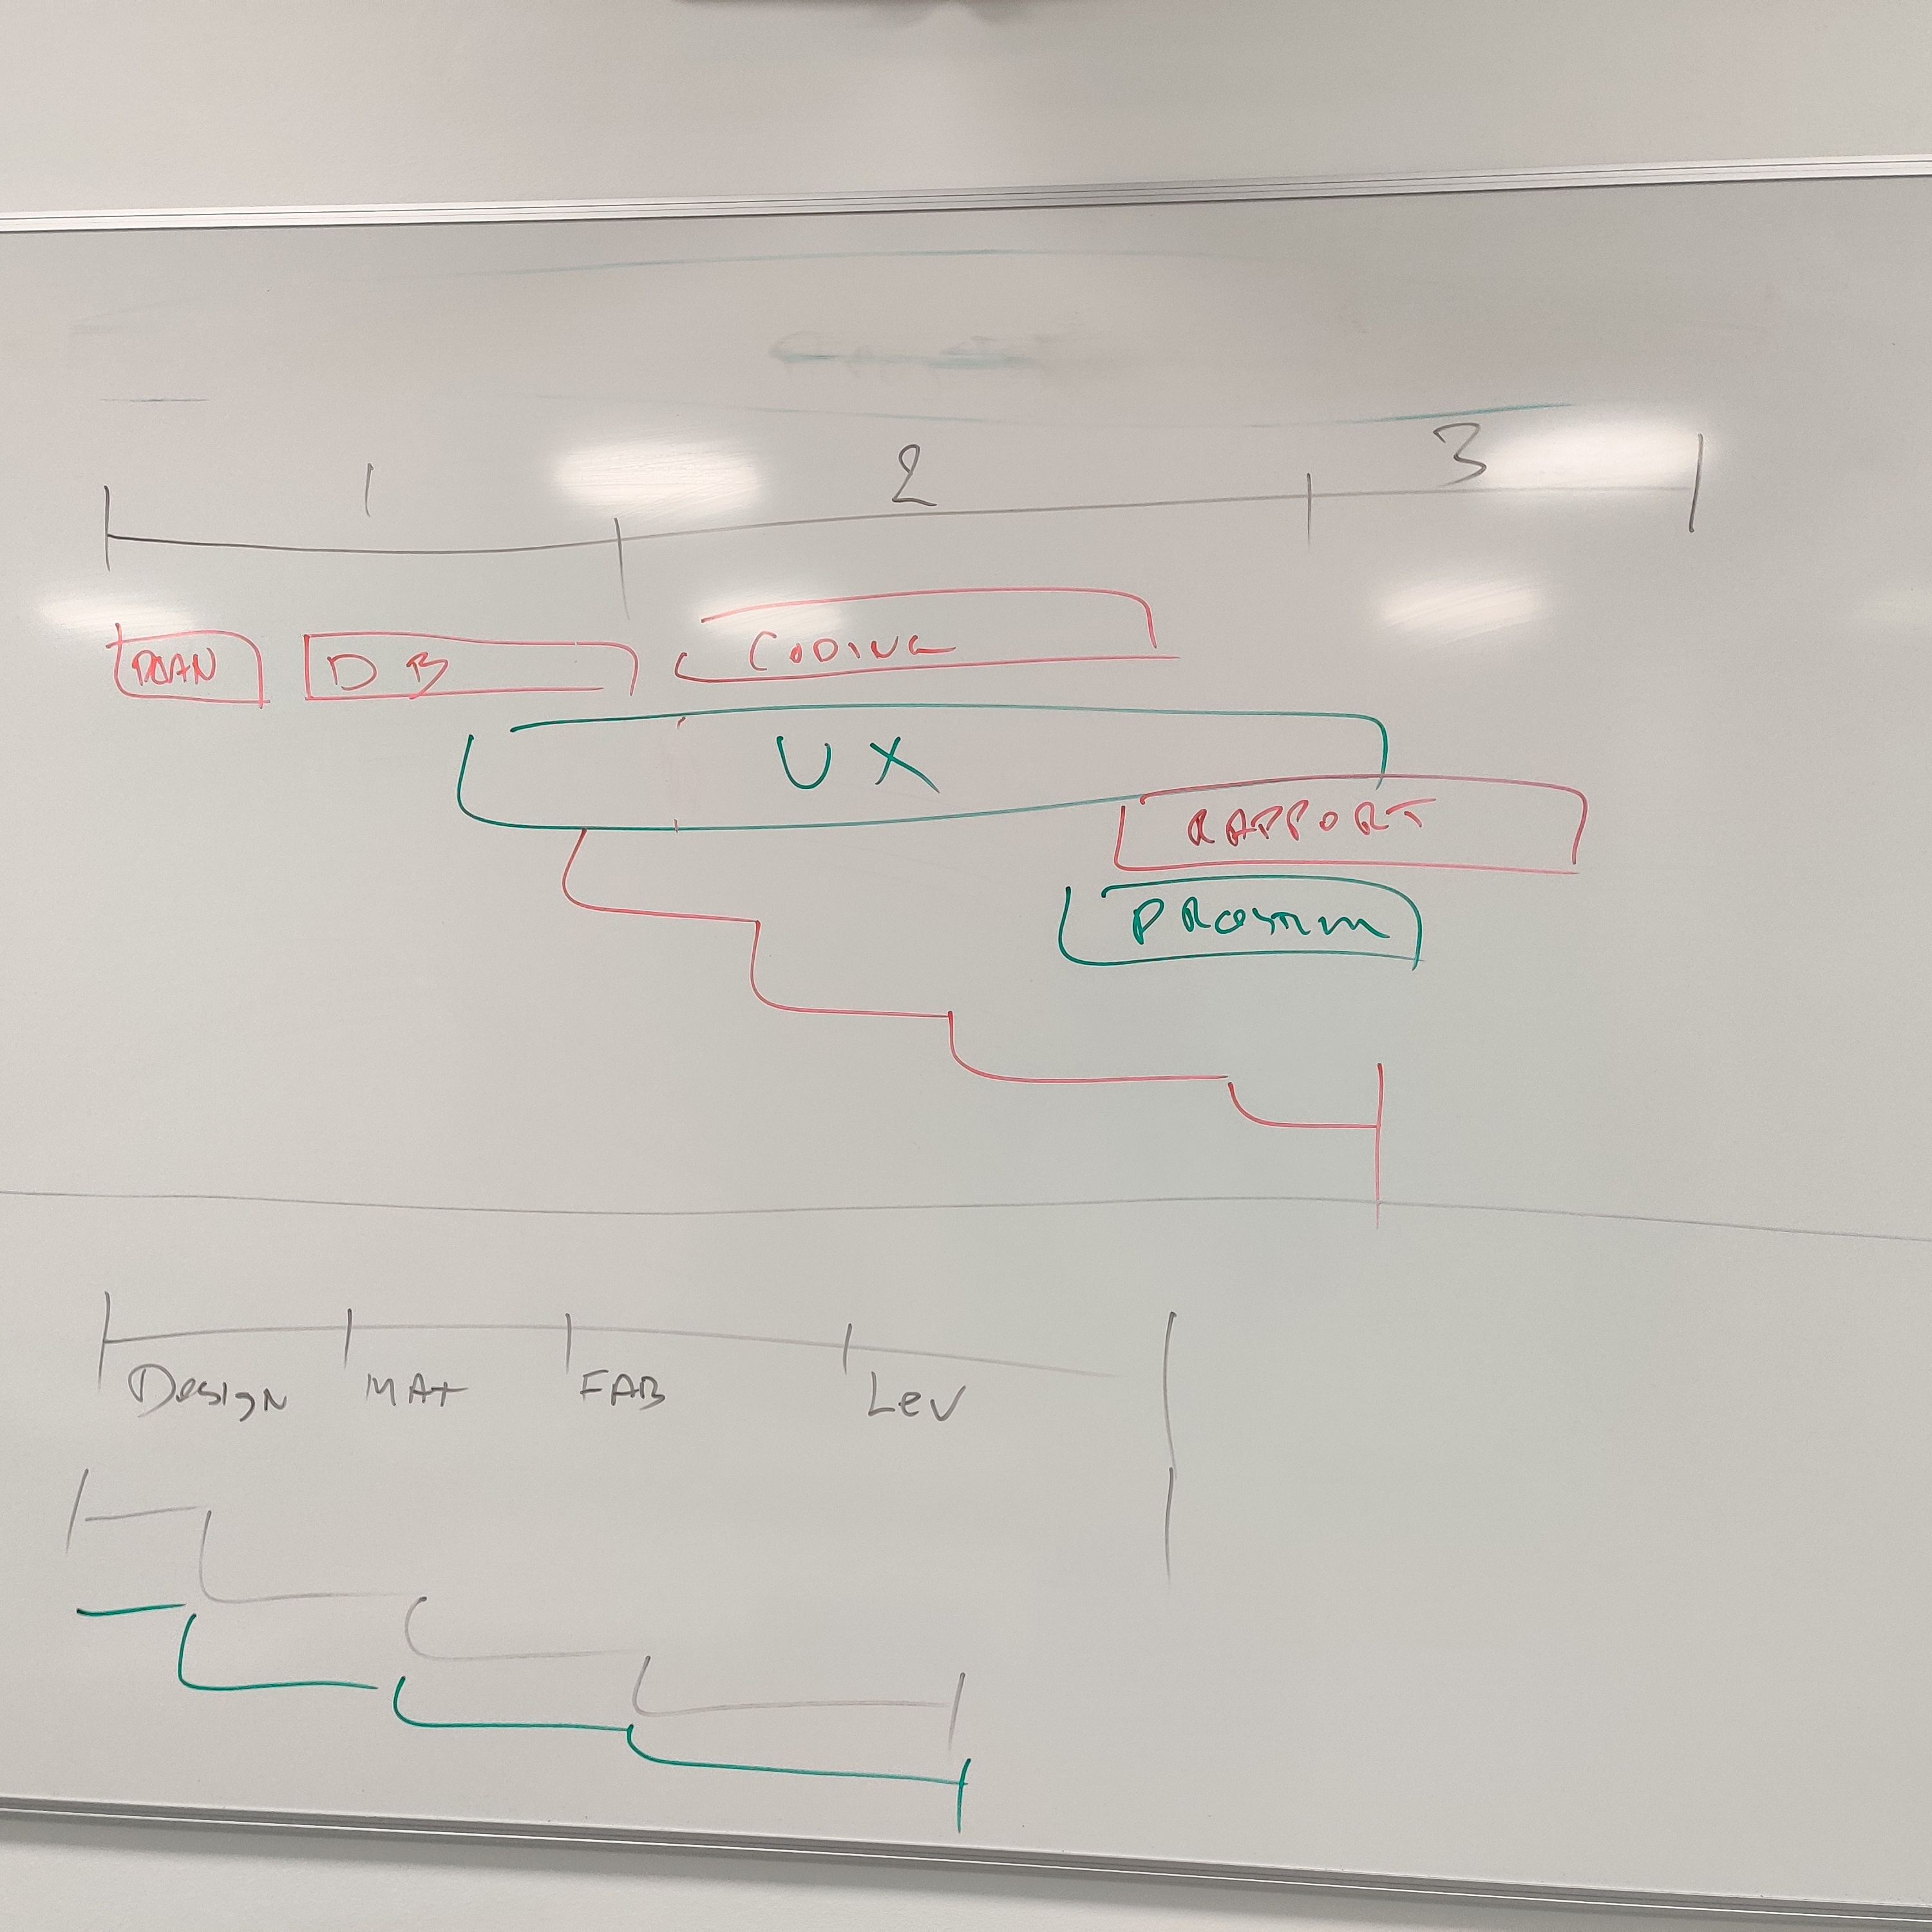 1 2 3
PLAN DB CODING
UX
RAPPORT
Design MAT FAB Lev